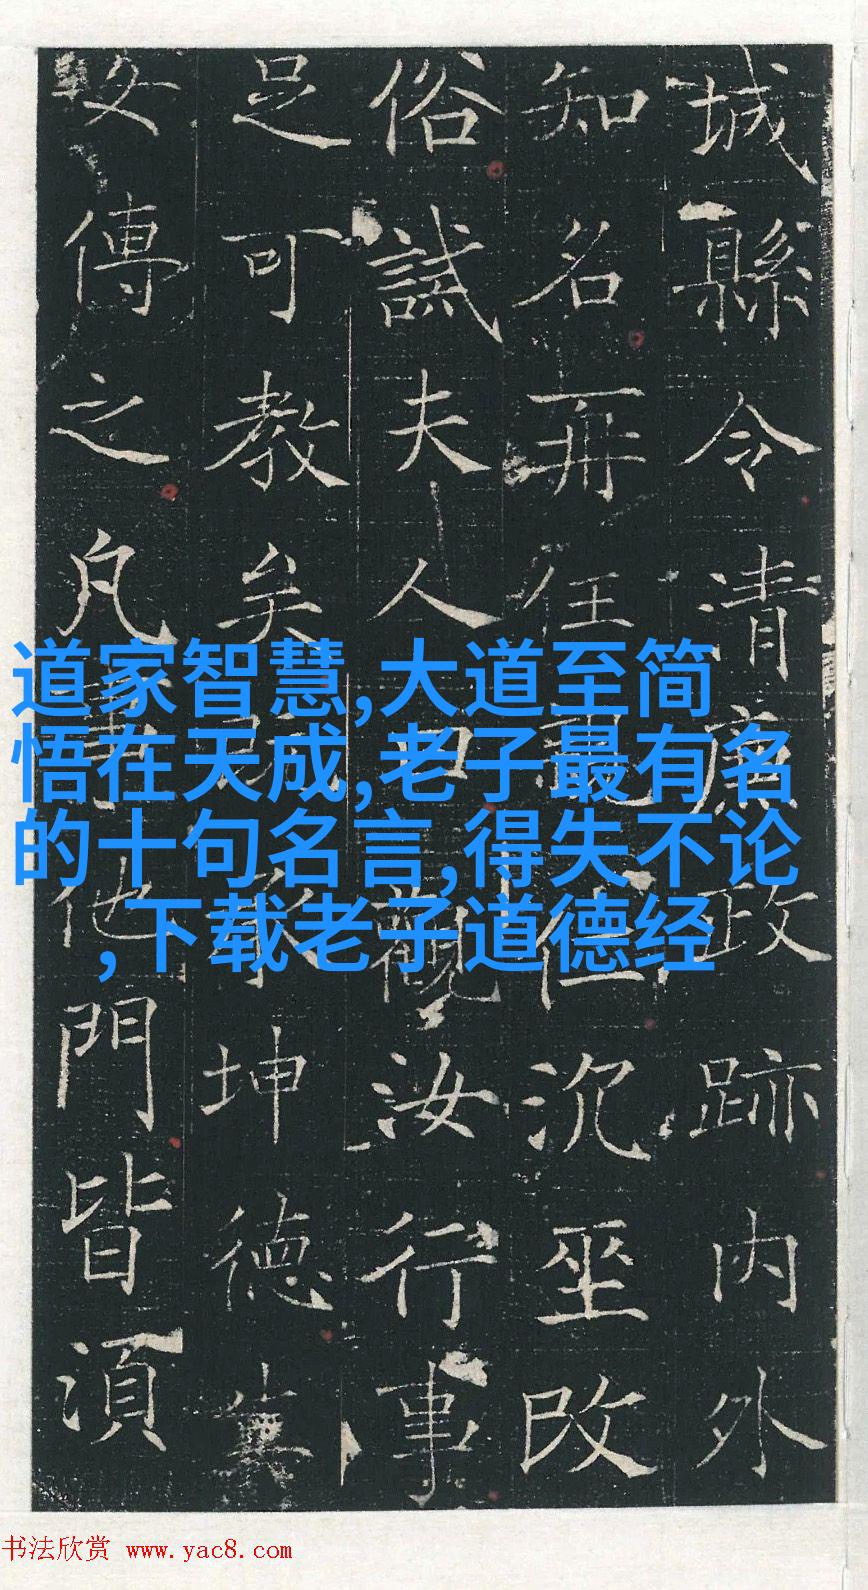 城縣令清廉政跡内外
知名再任但沉坐改
俗誠夫人曰觀汝行事
足可教矣坤德
傳之凡事他門皆須
道家智慧,大道至简
悟在天成,老子最有名
的十句名言,得失不论
,下载老子道德经
书法欣赏 www.yac8.com